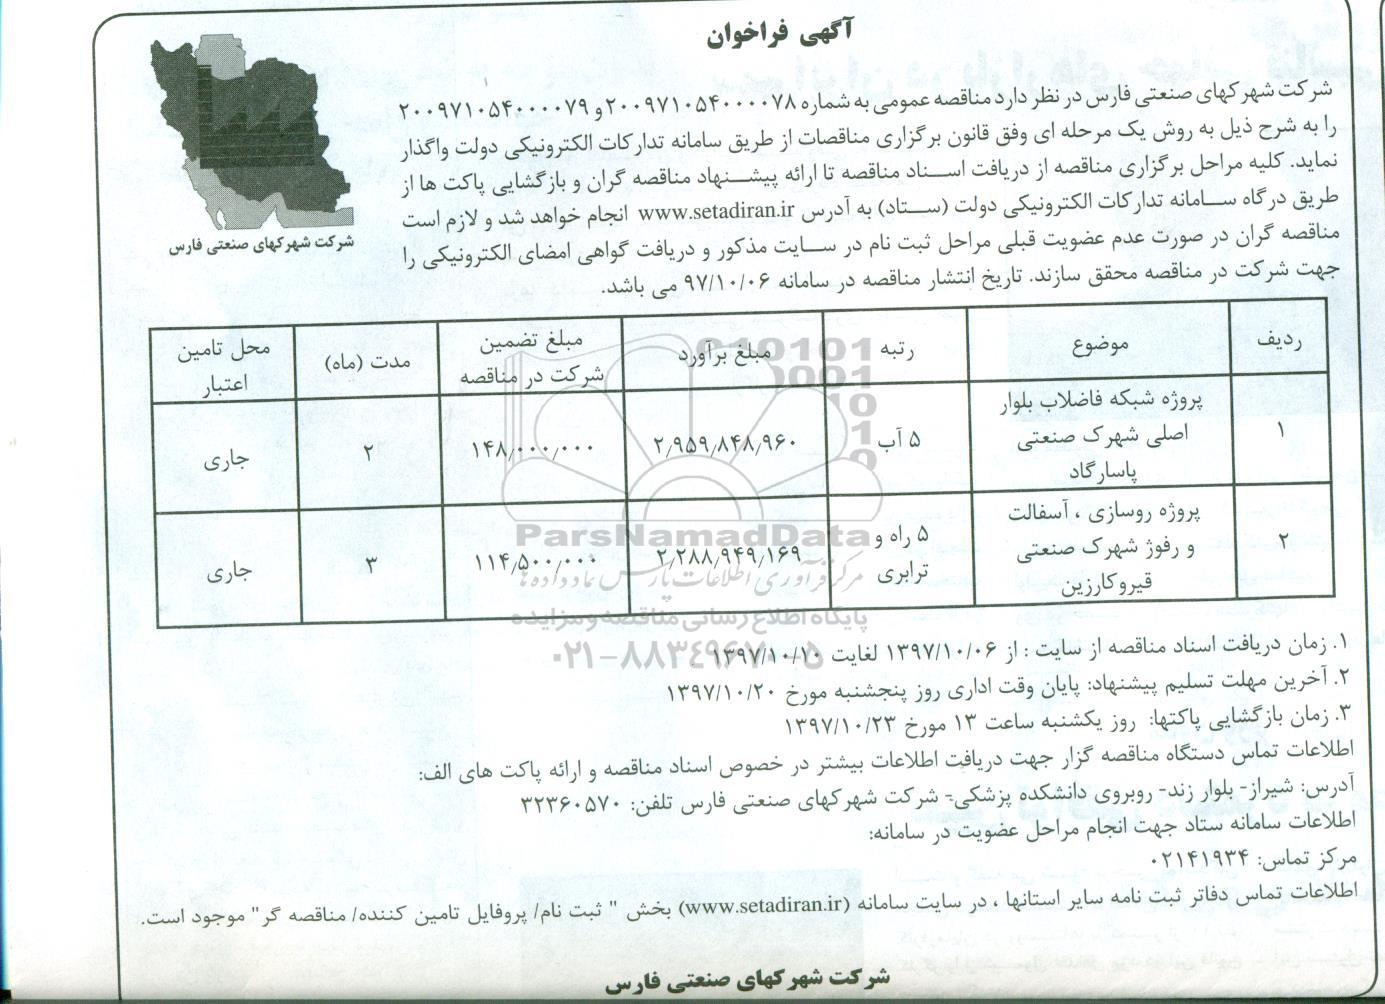 آگهی فراخوان
شرکت شهرکهای صنعتی فارس در نظر دارد مناقصه عمومی به شماره ۲۰۰۹۷۱۰۵۴۰۰۰۰۷۸ و ۲۰۰۹۷۱۰۵۴۰۰۰۰۷۹
را به شرح ذیل به روش یک مرحله ای وفق قانون برگزاری مناقصات از طریق سامانه تدارکات الکترونیکی دولت واگذار
نماید. کلیه مراحل برگزاری مناقصه از دریافت اسناد مناقصه تا ارائه پیشنهاد مناقصه گران و بازگشایی پاکت ها از
طریق درگاه سامانه تدارکات الکترونیکی دولت (ستاد) به آدرس www.setadiran.ir انجام خواهد شد و لازم است
مناقصه گران در صورت عدم عضویت قبلی مراحل ثبت نام در سایت مذکور و دریافت گواهی امضای الکترونیکی را
جهت شرکت در مناقصه محقق سازند. تاریخ انتشار مناقصه در سامانه ۹۷/۱۰/۰۶ می باشد.
شرکت شهرکهای صنعتی فارس
ردیف موضوع رتبه مبلغ برآورد مبلغ تضمین شرکت در مناقصه مدت (ماه) محل تامین اعتبار
۱ پروژه شبکه فاضلاب بلوار اصلی شهرک صنعتی پاسارگاد ۵ آب ۲٫۹۵۹٫۸۴۸٫۹۶۰ ۱۴۸٫۰۰۰٫۰۰۰ ۲ جاری
۲ پروژه روسازی ، آسفالت و رفوژ شهرک صنعتی قیروکارزین ۵ راه و ترابری ۲٫۲۸۸٫۹۴۹٫۱۶۹ ۱۱۴٫۵۰۰٫۰۰۰ ۳ جاری
ParsNamadData
مرکز فرآوری اطلاعات پارس نماد داده ها
پایگاه اطلاع رسانی مناقصه و مزایده
۰۲۱-۸۸۳۴۹۶۷۰-۵
۱. زمان دریافت اسناد مناقصه از سایت : از ۱۳۹۷/۱۰/۰۶ لغایت ۱۳۹۷/۱۰/۱۰
۲. آخرین مهلت تسلیم پیشنهاد: پایان وقت اداری روز پنجشنبه مورخ ۱۳۹۷/۱۰/۲۰
۳. زمان بازگشایی پاکتها: روز یکشنبه ساعت ۱۳ مورخ ۱۳۹۷/۱۰/۲۳
اطلاعات تماس دستگاه مناقصه گزار جهت دریافت اطلاعات بیشتر در خصوص اسناد مناقصه و ارائه پاکت های الف:
آدرس: شیراز- بلوار زند- روبروی دانشکده پزشکی- شرکت شهرکهای صنعتی فارس تلفن: ۳۲۳۶۰۵۷۰
اطلاعات سامانه ستاد جهت انجام مراحل عضویت در سامانه:
مرکز تماس: ۰۲۱۴۱۹۳۴
اطلاعات تماس دفاتر ثبت نامه سایر استانها ، در سایت سامانه (www.setadiran.ir) بخش " ثبت نام/ پروفایل تامین کننده/ مناقصه گر" موجود است.
شرکت شهرکهای صنعتی فارس